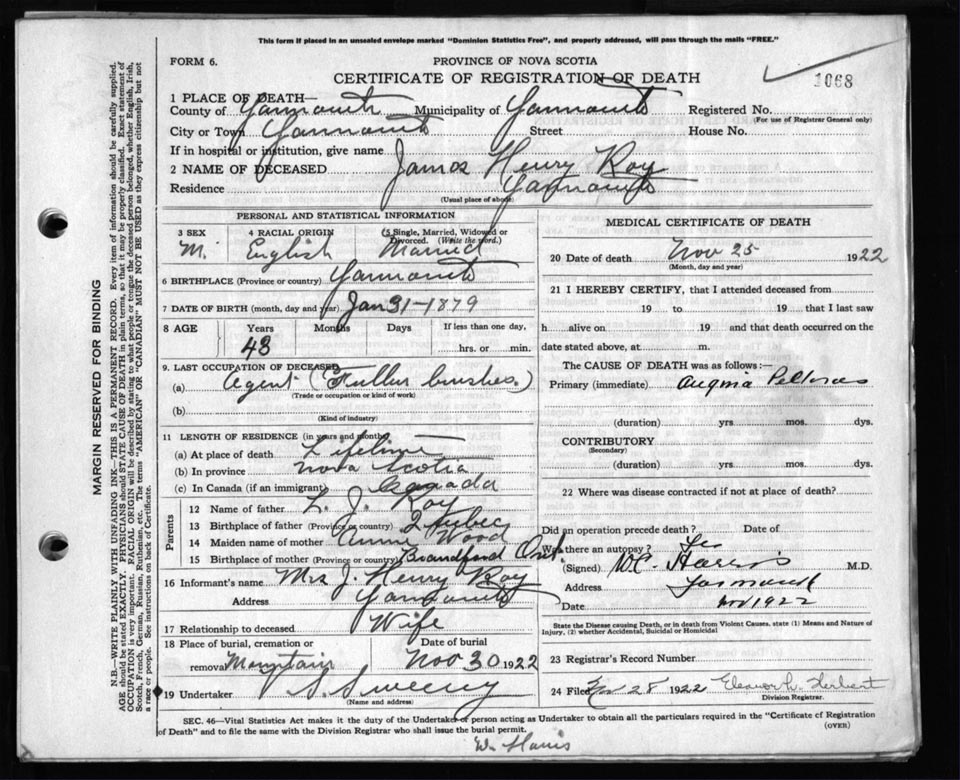 This form if placed in an unsealed envelope marked "Dominion Statistics Free", and properly addressed, will pass through the mails "FREE."
FORM 6.
PROVINCE OF NOVA SCOTIA
CERTIFICATE OF REGISTRATION OF DEATH
1068
1 PLACE OF DEATH—
County of Yarmouth Municipality of Yarmouth Registered No.
(For use of Registrar General only)
City or Town Yarmouth Street House No.
If in hospital or institution, give name
2 NAME OF DECEASED James Henry Roy
Residence Yarmouth
(Usual place of above)
PERSONAL AND STATISTICAL INFORMATION
3 SEX 4 RACIAL ORIGIN 5 Single, Married, Widowed or Divorced. (Write the word.)
M. English Married
6 BIRTHPLACE (Province or country) Yarmouth
7 DATE OF BIRTH (month, day and year) Jan 31-1879
8 AGE Years Months Days If less than one day,
43 hrs. or min.
9. LAST OCCUPATION OF DECEASED
(a) Agent (Fuller brushes.)
(Trade or occupation or kind of work)
(b)
(Kind of industry)
11 LENGTH OF RESIDENCE (in years and months)
(a) At place of death Lifetime
(b) In province Nova Scotia
(c) In Canada (if an immigrant) Canada
Parents
12 Name of father L. J. Roy
13 Birthplace of father (Province or country) Quebec
14 Maiden name of mother Annie Wood
15 Birthplace of mother (Province or country) Brandford Ont.
16 Informant's name Mrs J. Henry Roy
Address Yarmouth
17 Relationship to deceased Wife
18 Place of burial, cremation or Date of burial
removal Mountain Nov 30 1922
19 Undertaker V. S. Sweeny
(Name and address)
MEDICAL CERTIFICATE OF DEATH
20 Date of death Nov 25 1922
(Month, day and year)
21 I HEREBY CERTIFY, that I attended deceased from
19 to 19 that I last saw
h alive on 19 and that death occurred on
date stated above, at m.
The CAUSE OF DEATH was as follows:—
Primary (immediate) Angina Pectoris
(duration) yrs mos. dys.
CONTRIBUTORY
(Secondary)
(duration) yrs. mos. dys.
22 Where was disease contracted if not at place of death?
Did an operation precede death? Date of
Was there an autopsy?
(Signed) W.C. Harris M.D.
Address Yarmouth
Date Nov 1922
State the Disease causing Death, or in death from Violent Causes, state (1) Means and Nature of
Injury, (2) whether Accidental, Suicidal or Homicidal
23 Registrar's Record Number
24 Filed Nov 28 1922 Eleanor L. Herbert
Division Registrar.
SEC. 46—Vital Statistics Act makes it the duty of the Undertaker or person acting as Undertaker to obtain all the particulars required in the "Certificate of Registration
of Death" and to file the same with the Division Registrar who shall issue the burial permit.
(OVER)
W. Harris
MARGIN RESERVED FOR BINDING
N.B.—WRITE PLAINLY WITH UNFADING INK—THIS IS A PERMANENT RECORD. Every item of information should be carefully supplied.
AGE should be stated EXACTLY. PHYSICIANS should STATE CAUSE OF DEATH in plain terms, so that it may be properly classified. Exact statement of
OCCUPATION is very important. RACIAL ORIGIN will be described by stating to what people or tongue the deceased person belonged, whether English, Irish,
Scotch, French, German, Russian, Ruthenian, etc. The terms "AMERICAN" OR "CANADIAN" MUST NOT BE USED as they express citizenship but not
a race or people. See instructions on back of Certificate.